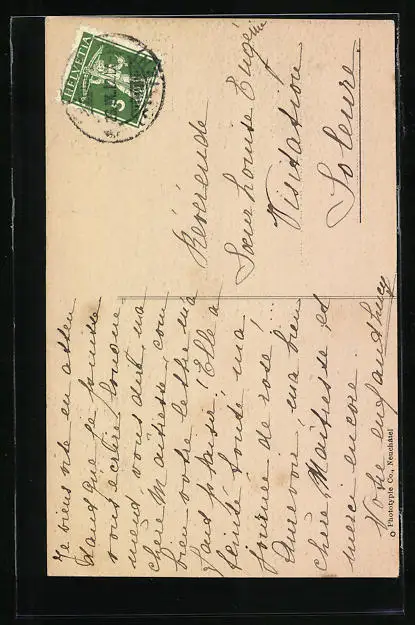 HELVETIA
5
Révérende
Sœur Louise Eugénie
Visitation
Soleure.
Je viens vite en atten
dant que je puisse
vous écrire longue-
ment, vous dire, ma
chère Maîtresse, com
bien votre lettre m'a
fait plaisir! Elle a
teinté toute ma
journée de rose!
Aurevoir, ma bien
chère Maîtresse et
merci encore.
Votre enfant
Phototypie Co., Neuchâtel